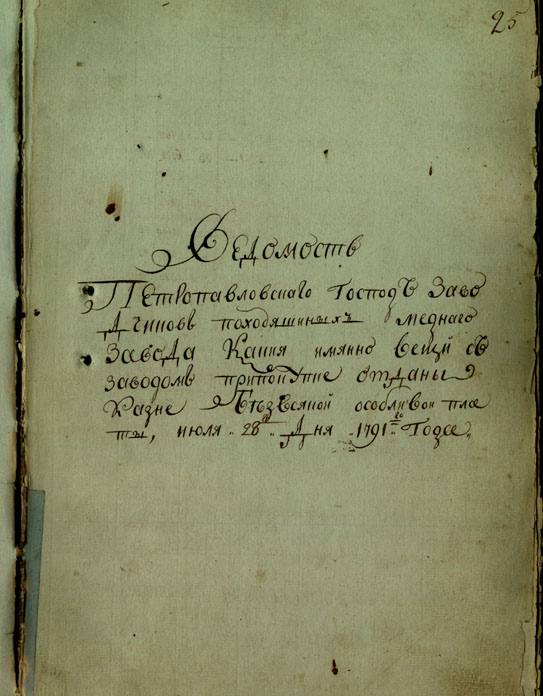 25
Ведомость
Петропавловскаго Господъ Заво
дчиковъ походяшиныхъ меднаго
завода Какия имянно вещи съ
заводомъ припокупке отданы
Казне безвсякой особливой пла
ты, июля 28 дня 1791 го Года.